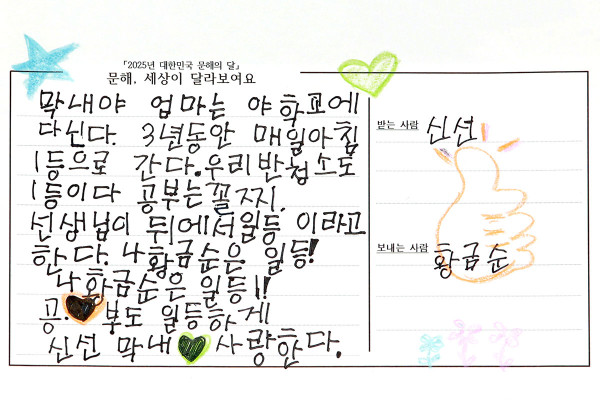 「2025년 대한민국 문해의 달」
문해, 세상이 달라보여요
막내야 엄마는 야학교에
다닌다. 3년동안 매일아침
1등으로 간다.우리반청소도
1등이다 공부는꼴찌.
선생님이 뒤에서일등 이라고
한다. 나황금순은 일등!
나황금순은 일등!!
공부도 일등하게
신선 막내 사랑한다.
받는 사람 신선
보내는 사람 황금순